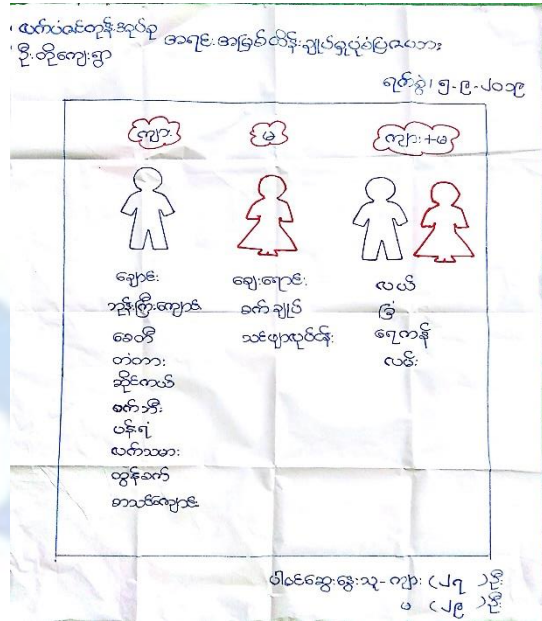 လက်ပံဇင်တုန်းအုပ်စု
ဦးတိုကျေးရွာ
အရင်းအမြစ်ထိန်းချုပ်မှုပုံစံပြဇယား
ရက်စွဲ၊ ၅-၉-၂၀၁၉
ကျား
မ
ကျား+မ
ချောင်း
ဘုန်းကြီးကျောင်း
စေတီ
တံတား
ဆိုင်ကယ်
စက်ဘီး
ပန်းရံ
လက်သမား
ထွန်စက်
စာသင်ကျောင်း
ဈေးရောင်း
စက်ချုပ်
သင်ဖျာလုပ်ငန်း
လယ်
ခြံ
ရေကန်
လမ်း
ပါဝင်ဆွေးနွေးသူ - ကျား (၂၇) ဦး
မ (၂၉) ဦး